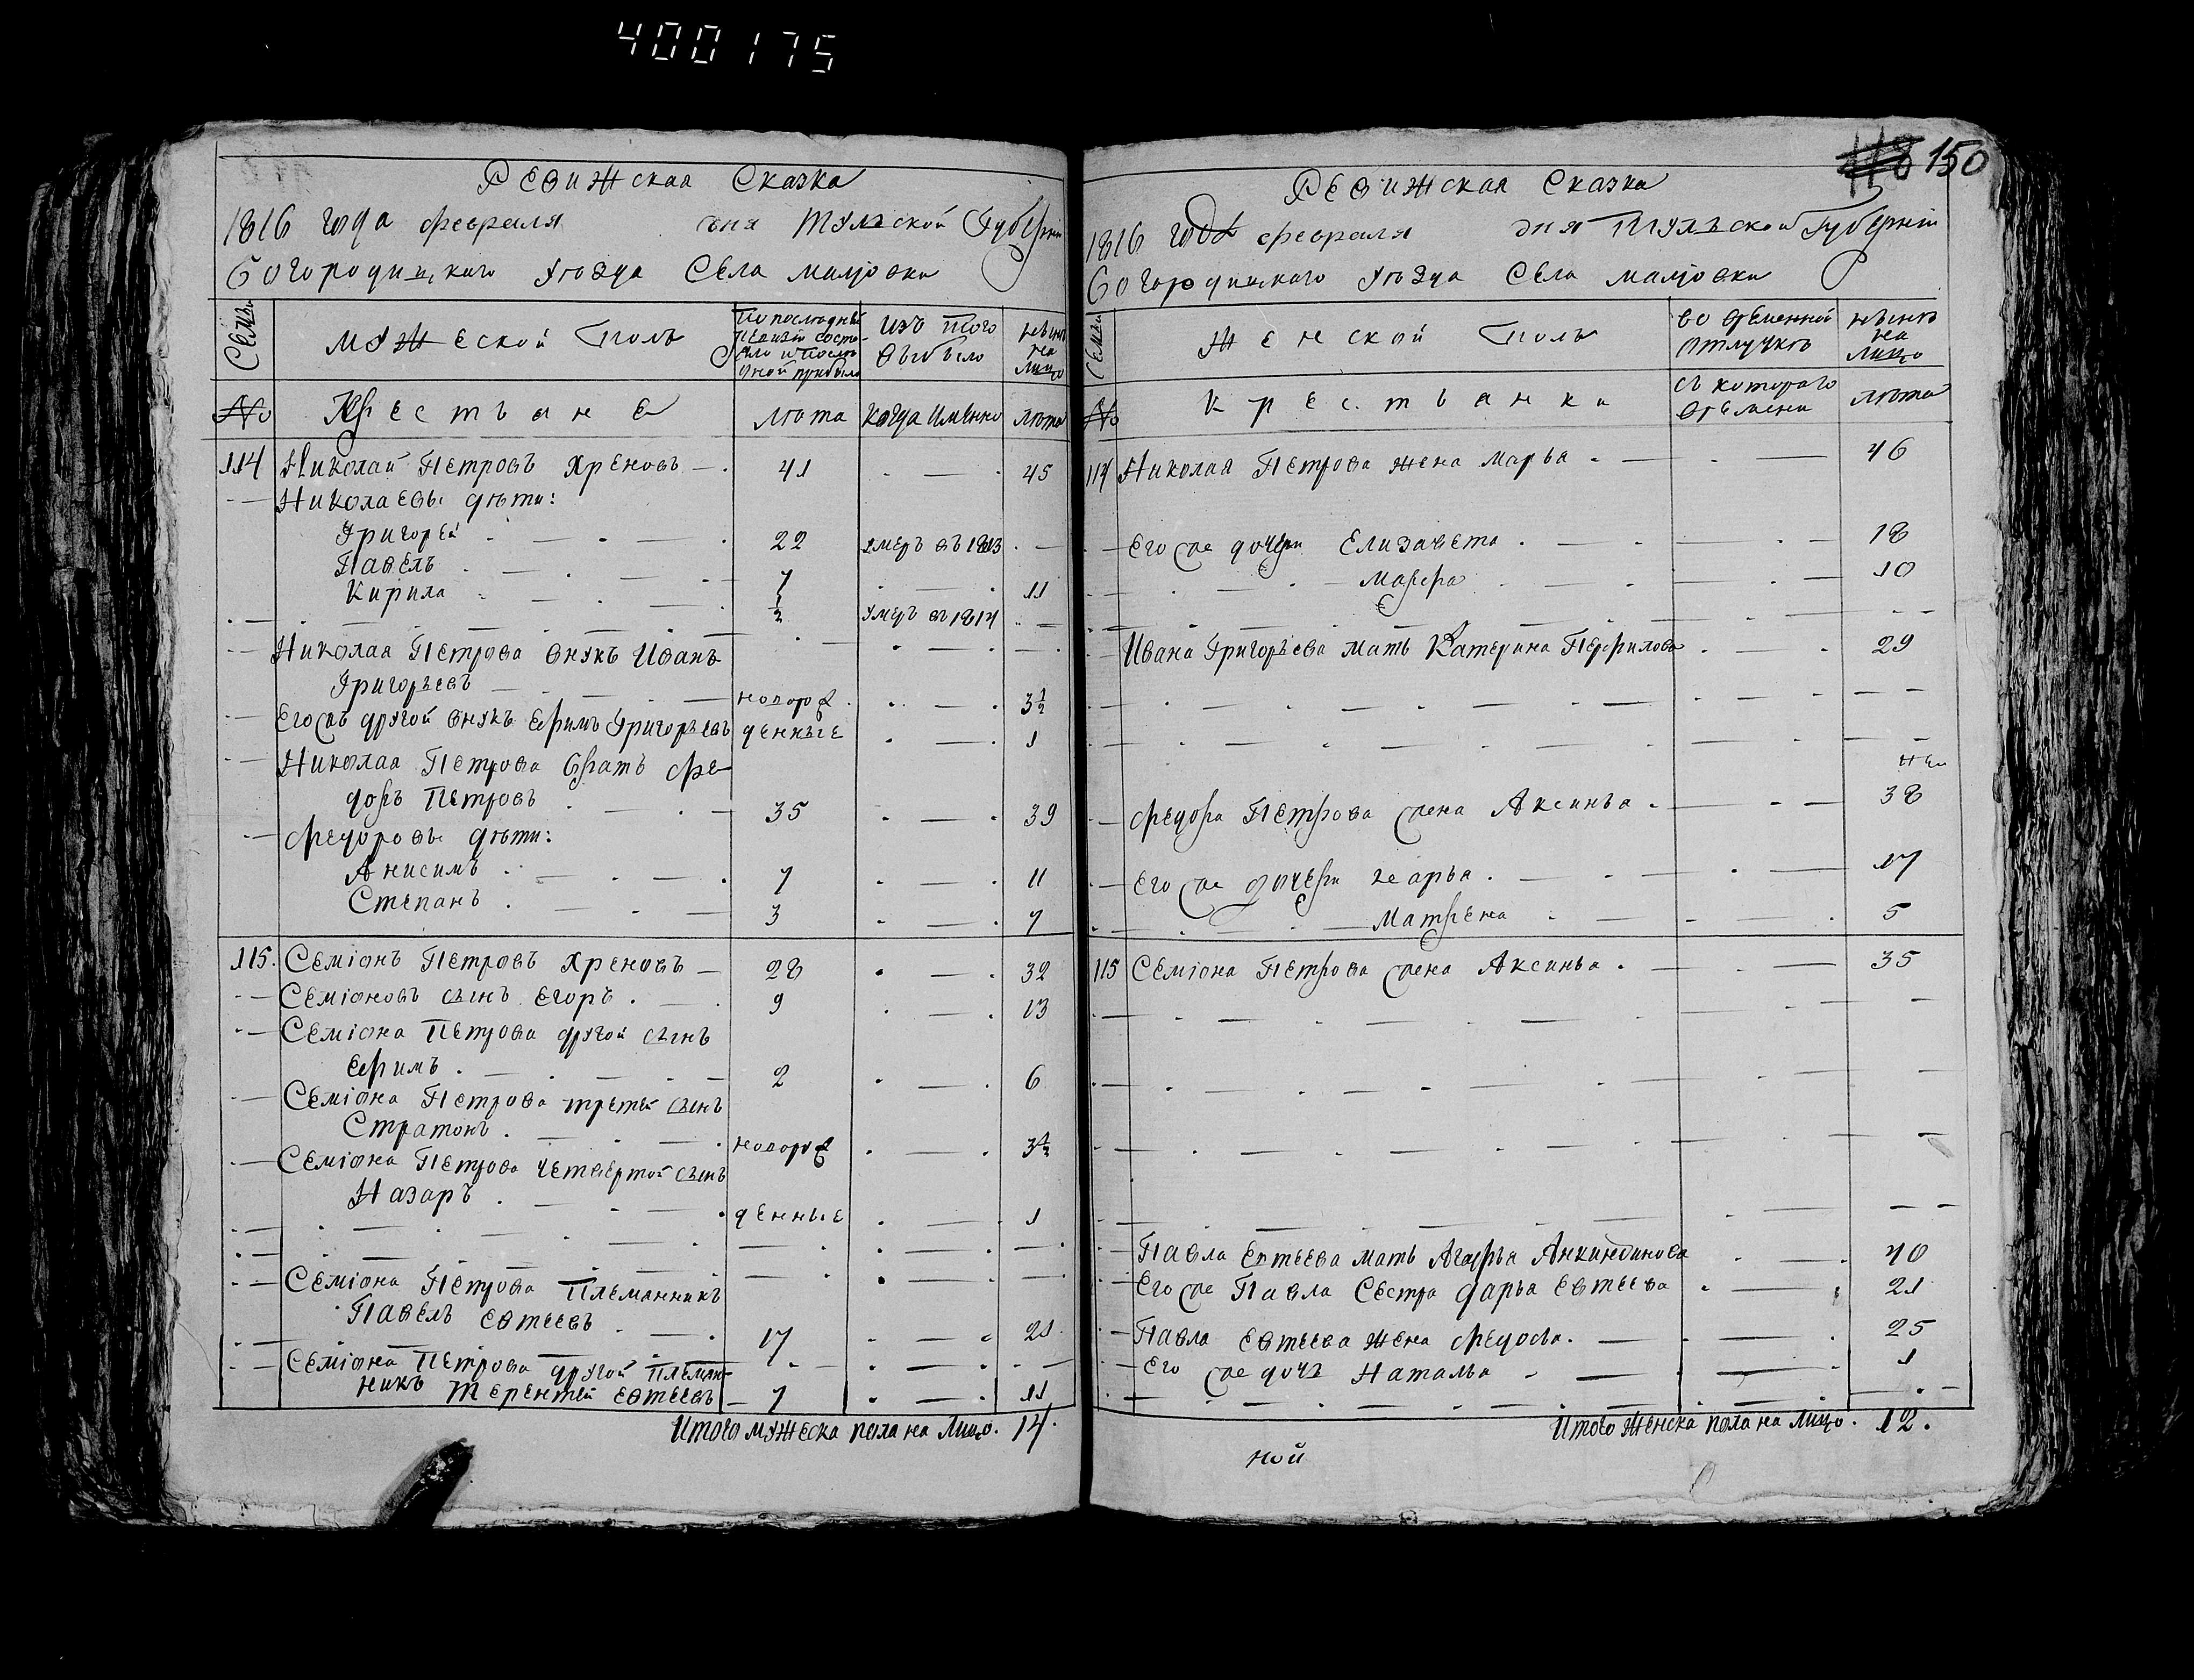 400175
Ревижская Сказка
1816 года февраля дня Тульской Губерніи
Богородицкаго уѣзда Села малцовки
Семьи
мужеской Полъ
По последнѣй ревизіи состояло и послѣ оной прибыло
Изъ того выбыло
нынѣ на лицо
№ Крестьяне лѣта когда имянно лѣта
114 Николай Петровъ Хреновъ 41 45
Николаевы дѣти:
Григорей 22 умеръ въ 1813
Павелъ 7 11
Кирила 1/2 умеръ въ 1814
Николая Петрова внукъ Иванъ
Григорьевъ новорож 3 1/2
Его жъ другой внукъ Ефимъ Григорьевъ денные 1
Николая Петрова братъ Фе
доръ Петровъ 35 39
Федоровы дѣти:
Анисимъ 7 11
Степанъ 3 7
115. Семіонъ Петровъ Хреновъ 28 32
Семіоновъ сынъ Егоръ 9 13
Семіона Петрова другой сынъ
Ефимъ 2 6
Семіона Петрова третей сынъ
Стратонъ новорож 3 1/2
Семіона Петрова четвертой сынъ
Назаръ денные 1
Семіона Петрова Племянникъ
Павелъ Евтеевъ 17 21
Семіона Петрова другой племян
никъ Терентей Евтеевъ 7 11
Итого мужеска пола на лицо. 14.
118 150
Ревижская Сказка
1816 года февраля дня Тульской Губерніи
Богородицкаго уѣзда Села малцовки
Семьи
Женской Полъ
во временной отлучкѣ
нынѣ на лицо
№ Крестьянки съ котораго времени лѣта
114 Николая Петрова жена Марья 46
Его же дочери Елизавета 18
Марфа 10
Ивана Григорьева мать Катерина Перфилова 29
Федора Петрова жена Аксинья 38
Его же дочери Марья 17
Матрена 5
115 Семіона Петрова жена Аксинья 35
Павла Евтеева мать Агафья Анкиндинова 40
Его же Павла Сестра дарья Евтеева 21
Павла Евтеева жена Федосья 25
Его же дочь Наталья 1
Итого Женска пола на лицо. 12.
ной